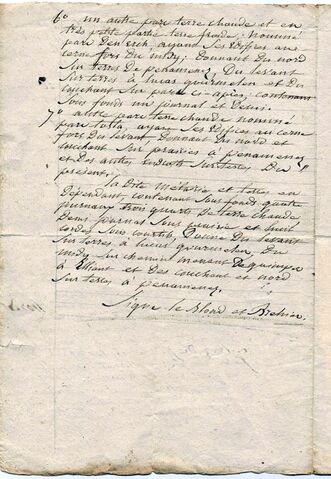 6° un autre parc terre chaude et en
très petite partie terre froide, nommé
parc ayant ses édifices au
cerne fors du midy; Donnant du nord
sur terres à penamenez, Du levant
sur terres à hives gourmelen et Du
couchant sur parc ci-après; contenant
sous fonds un journal et Demi.
7° autre parc terre chaude nommé
parc ayant ses édifices au cerne
fors du levant, Donnant du nord et
couchant sur prairies à penamenez
et Des autres endroits sur terres Du
présent;
la Dite métairie et terres en
Dépendant, contenant sous fonds quatre
journaux trois quarts de terre chaude
Deux journas sous prairie et huit
cordes sous courtil, Donne Du levant
sur terres à hives gourmelen, Du
midy sur chemin menant De quimper
à Elliant et Des couchant et nord
sur terres à penamenez,
Signé le Blond et